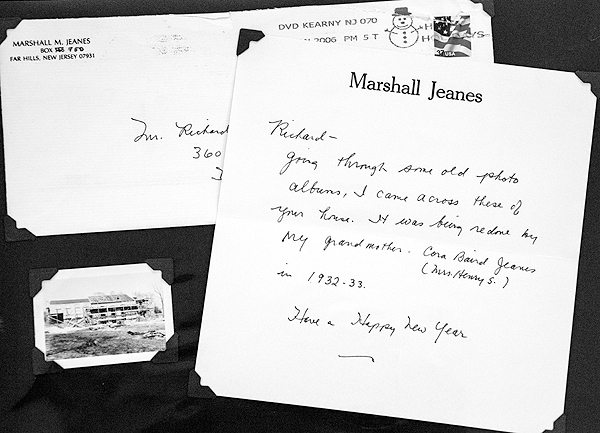 MARSHALL M. JEANES
BOX 450
FAR HILLS, NEW JERSEY 07931
DVD KEARNY NJ 070
2006 PM 5 T
USA
Mr. Richard
360
Marshall Jeanes
Richard –
Going through some old photo
albums, I came across these of
your house. It was being redone by
my grandmother. Cora Baird Jeanes
(Mrs. Henry S.)
in 1932-33.
Have a Happy New Year